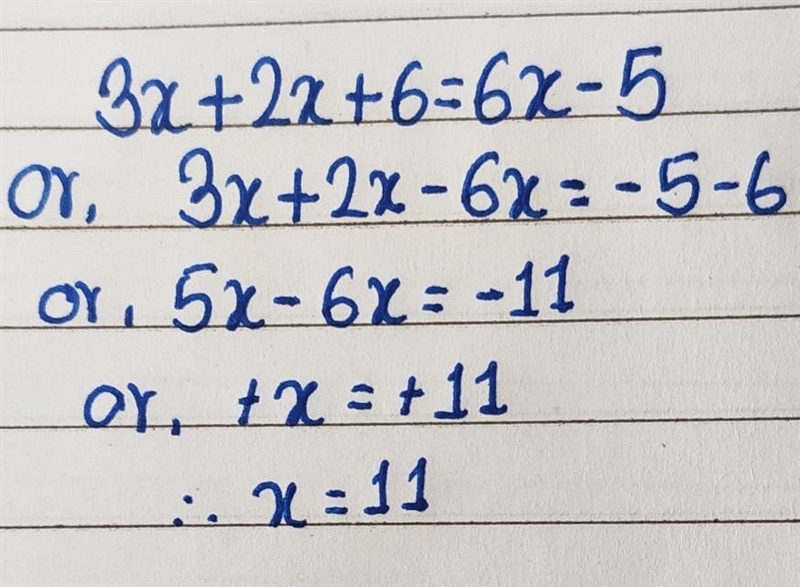 3x+2x+6=6x-5
or, 3x+2x-6x=-5-6
or, 5x-6x=-11
or, +x=+11
∴ x=11